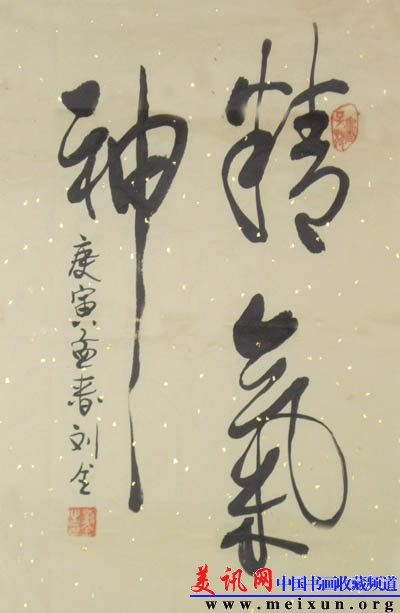 精氣
神
庚寅孟春刘全
美讯网 中国书画收藏频道
www.meixun.org